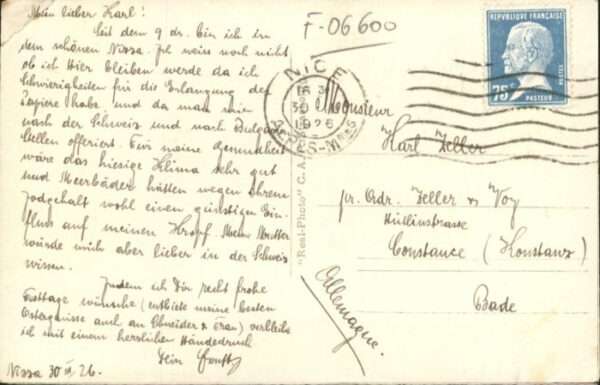 Mein lieber Karl!
Seit dem 9 ds. bin ich in
dem schönen Nizza. Ich weis noch nicht
ob ich hier bleiben werde da ich
Schwierigkeiten für die Erlangung der
Papiere habe und da man mir
nach der Schweiz und nach Bulgar.
Stellen offeriert. Für meine Gesundheit
wäre das hiesige Klima sehr gut
und Meerbäder hätten wegen ihrem
Jodgehalt wohl einen günstigen Ein-
fluss auf meinen Kropf. Meine Mutter
würde mich aber lieber in der Schweiz
wissen.
Indem ich Dir recht frohe
Festtage wünsche (entbiete meine besten
auch an Schneider & Frau) verbleibe
ich mit einem herzlichen Händedruck
Dein
Nizza 30 26.
F-06600
NICE
30
1926
ALPES-MMES
REPUBLIQUE FRANÇAISE
75c
POSTES
PASTEUR
"Real-Photo" C. A. P.
Monsieur
Karl Zeller
pr. Adr. Zeller & Voy
Hüllinstrasse
Constance (Konstanz)
Bade
Allemagne.